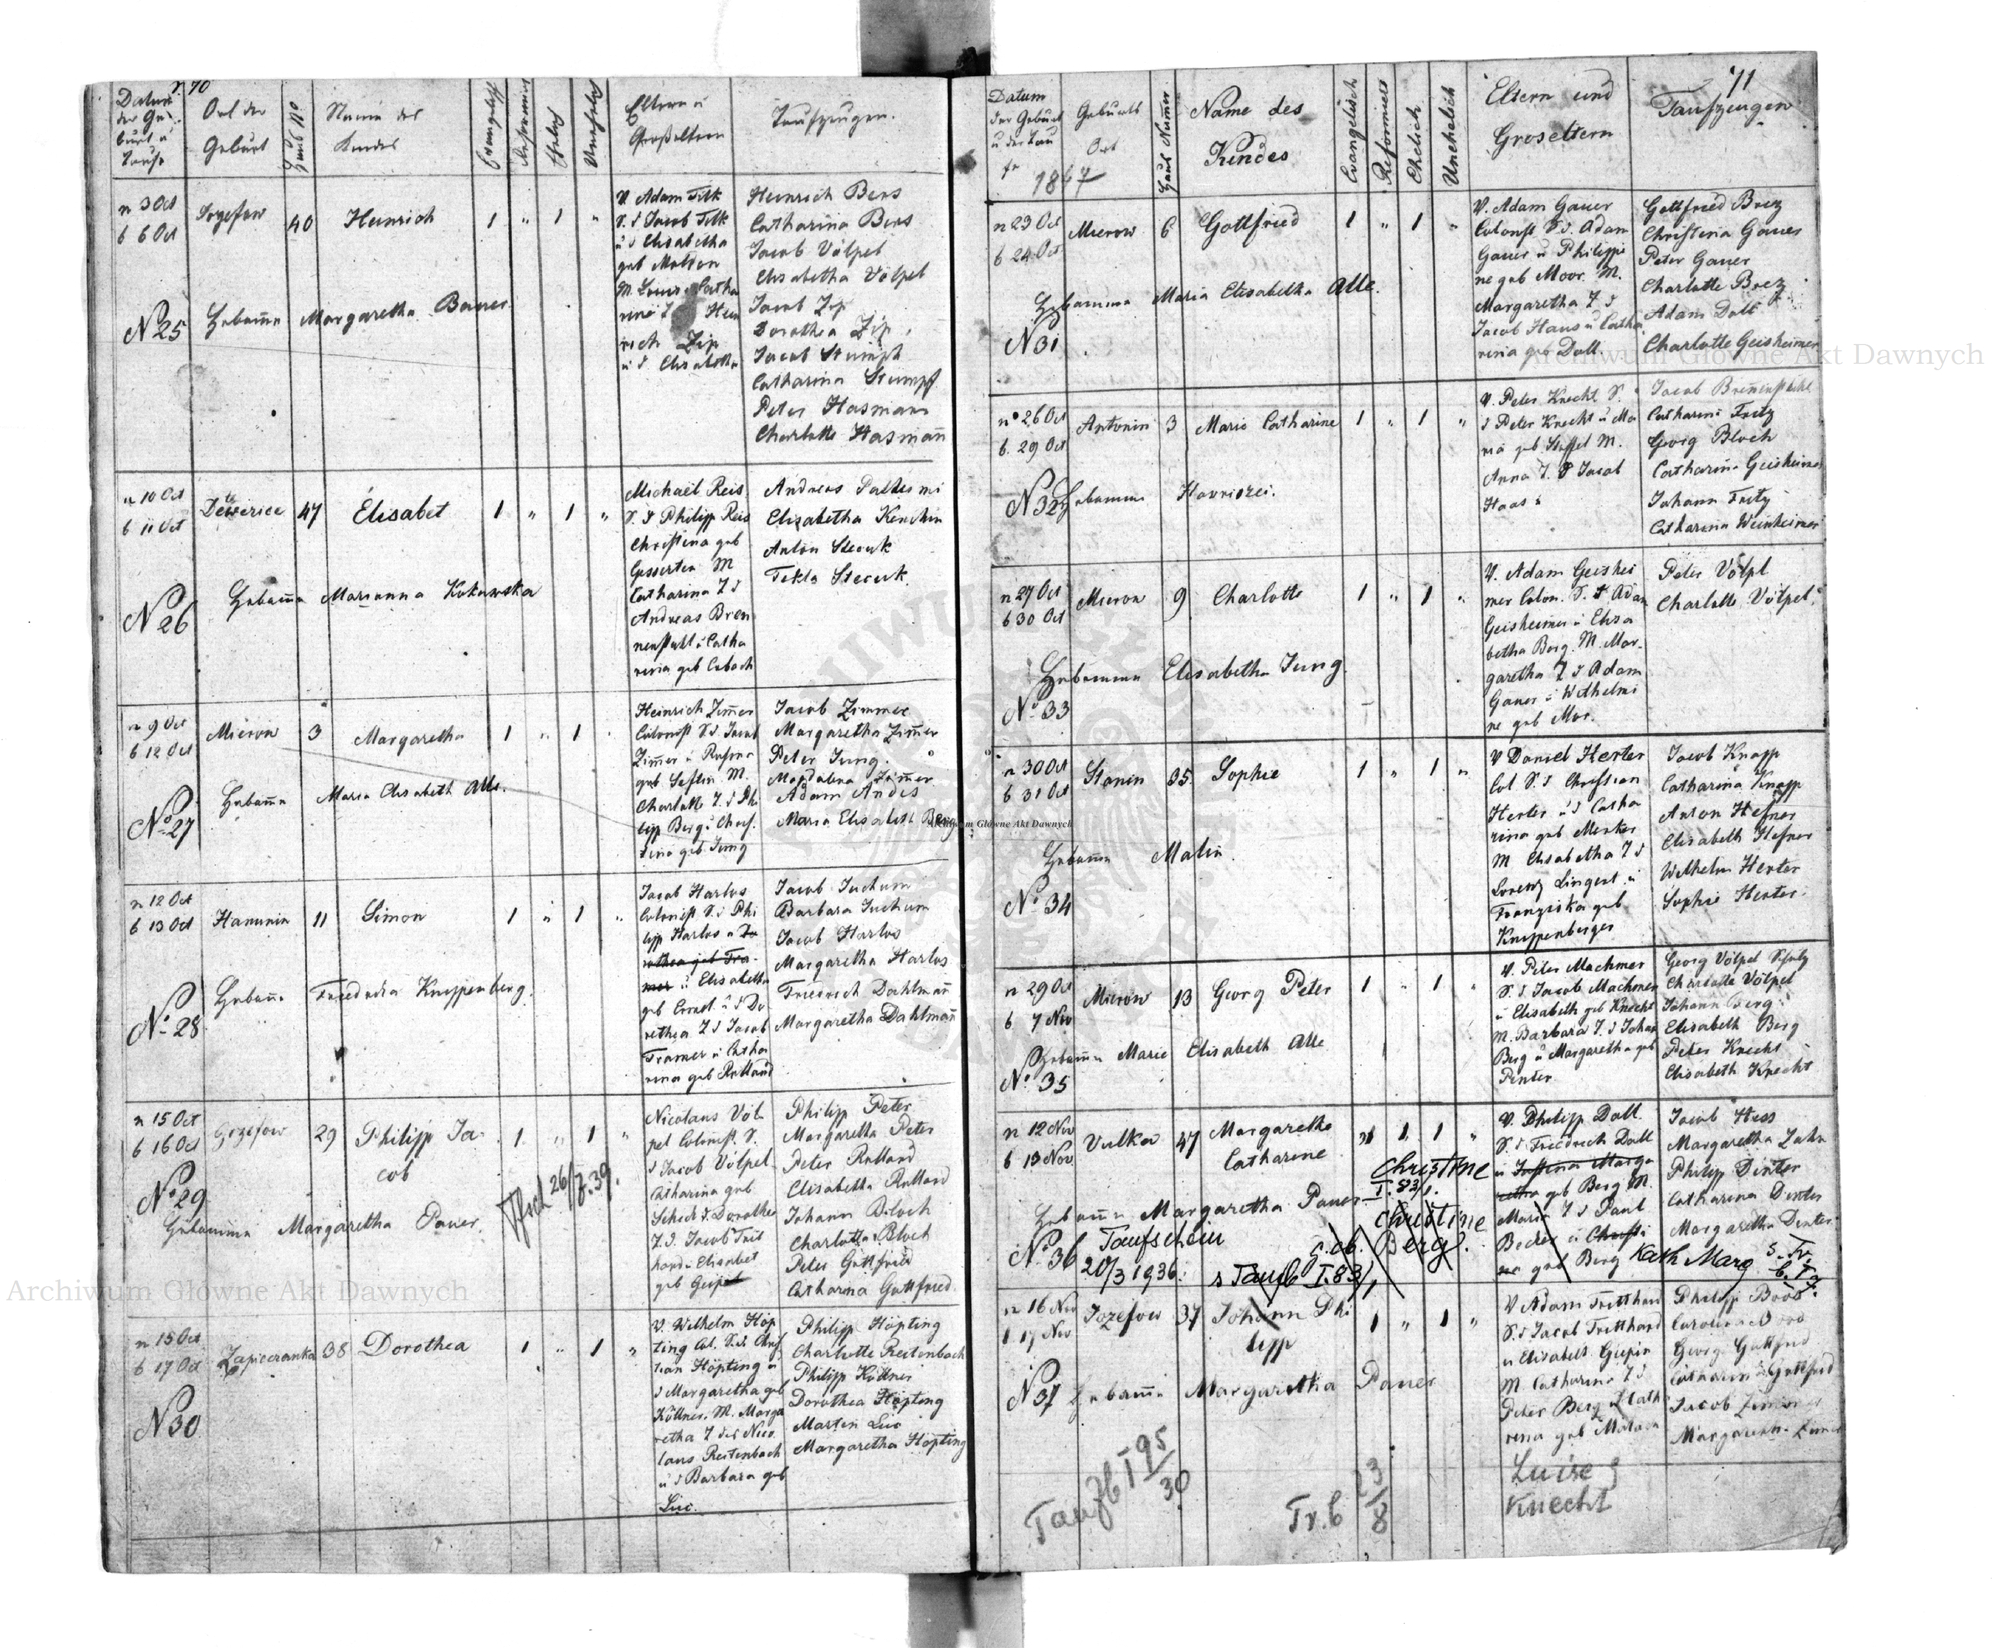 70
Datum
der Ge
burt u
Taufe
Ort der
Geburt
Haus No
Name des
Kindes
Evangelisch
Reformiert
Ehelich
Unehelich
Eltern u
Großeltern
Taufzeugen.
n 3 Oct
b 6 Oct
Jozefow
40
Heinrich
1 " 1 "
V. Adam Tilk
S. d Jacob Tilk
u d Elisabetha
geb
M. Louise Catha
rina T d Hein
rich Zip
u d Elisabetha
Heinrich Bers
Catharina Bers
Jacob Völpel
Elisabetha Völpel
Jacob Zip
Dorothea Zip
Jacob Stumpf
Catharina Stumpf
Peter Hasmann
Charlotte Hasmañ
No 25
Hebam̃e Margaretha Bauer
n 10 Oct
b 11 Oct
47
Elisabet
1 " 1 "
Michael Reis
S. d Philipp Reis
Christina geb
M
Catharina T d
Andreas Bren
nenstuhl u Catha
rina geb
Andreas
Elisabetha
Anton
Tekla
No 26
Hebam̃e Marianna Kukawska
n 9 Oct
b 12 Oct
Mierow
3
Margaretha
1 " 1
Heinrich Zim̃er
Colonist S. d. Jacob
Zim̃er u
geb M.
Charlotte T. d Phi
lipp Berg u Chris
tina geb Jung
Jacob Zimmer
Margaretha Zim̃er
Peter Jung
Magdalena Zim̃er
Adam Andes
Maria Elisabeth Berg
No 27
Hebam̃e Maria Elisabeth Alle.
n 12 Oct
b 13 Oct
Hanunin
11
Simon
1 " 1 "
Jacob Harlos
Colonist S. d Phi
lipp Harlos u Do
rothea geb Tra
mer u Elisabetha
geb Ernst u d Do
rothea T d Jacob
Tramer u Catha
rina geb Rulland
Jacob Juchum
Barbara Juchum
Jacob Harlos
Margaretha Harlos
Friedrich Dahlmañ
Margaretha Dahlmañ
No 28
Hebam̃e Friedricka Knippenberg.
n 15 Oct
b 16 Oct
29
Philipp Ja
cob
1. " 1 "
Nicolaus Völ
pel Colonist. S.
d Jacob Völpel
Catharina geb
Schick d. Dorothea
T. d. Jacob Trit
hard u Elisabet
geb
Philipp Peter
Margaretha Peter
Peter Rulland
Elisabetha Rulland
Johann Bloch
Charlotta Bloch
Peter Gottfried
Catharina Gottfried
No 29
Hebam̃e Margaretha Pauer.
26/7.39.
n 15 Oct
b 17 Oct
Zapieceranka
38
Dorothea
1 " 1 "
V. Wilhelm Höp
ting Col. S. d. Chris
tian Höpting u
d Margaretha geb
Köllner. M. Marga
retha T des Nico
laus Reitenbach
u d Barbara geb
Luc.
Philipp Höpting
Charlotte Reitenbach
Philipp Köllner
Dorothea Höpting
Martin Luc
Margaretha Höpting
No 30
71
Datum
der Geburt
u der Tau
fe
1847
Geburts
Ort
Haus Num̃er
Name des
Kindes
Evangelisch
Reformiert
Ehelich
Unehelich
Eltern und
Groseltern
Taufzeugen
n 23 Oct
b 24 Oct
Mierow
6
Gottfried
1 " 1 "
V. Adam Gauer
Colonist S d. Adam
Gauer u Philippi
ne geb Moor. M.
Margaretha T d
Jacob Haus u Catha
rina geb Doll
Gottfried Brez
Christina Gauer
Peter Gauer
Charlotte Brez
Adam Doll
Charlotte Geisheimer
Hebamme Maria Elisabetha Alle.
No 31
n 26 Oct
b. 29 Oct
Antonin
3
Marie Catharine
1 " 1 "
V. Peter Knecht S.
d Peter Knecht u Ma
ria geb M.
Anna T. d Jacob
Haas
Jacob Brenenstuhl
Catharina Fritz
Georg Bloch
Catharina Geisheimer
Johann Fritz
Catharina Weinheimer
No 32 Hebamme
n 27 Oct
b 30 Oct
Mierow
9
Charlotte
1 " 1 "
V. Adam Geishei
mer Colon. S. d Adam
Geisheimer u Elisa
betha Berg. M. Mar-
garetha T d Adam
Gauer u Wilhelmi
ne geb Mor.
Peter Völpl
Charlotte Völpel
Hebamme Elisabetha Jung.
No 33
n 30 Oct
b 31 Oct
Stanin
35
Sophie
1 " 1 "
V Daniel Herter
Col S. d Christian
Herter u d Catha
rina geb Merker
M Elisabetha T d
Lorenz Lingert u
Franziska geb
Knippenberger
Jacob Knapp
Catharina Knapp
Anton Hefner
Elisabeth Hefner
Wilhelm Herter
Sophie Herter
Hebam̃e Malin.
No 34
n 29 Oct
b 7 Nov
Mierow
13
Georg Peter
1 " 1 "
V. Peter Machmer
S. d. Jacob Machmer
u Elisabeth geb Knecht
M. Barbara T. d Johan
Berg u Margaretha geb
Penter
Georg Völpel
Charlotte Völpel
Johann Berg
Elisabeth Berg
Peter Knecht
Elisabeth Knecht
Hebam̃e Marie Elisabeth Alle
No 35
n 12 Nov
b 13 Nov
Wulka
47
Margaretha
Catharine
1 1 "
V. Philipp Doll.
S. d Friedrich Doll
geb Berg M.
Maria T d Paul
Becker u Christi
ne geb Berg
Jacob Hess
Margaretha Zahn
Philipp Dinter
Catharina Dinter
Margaretha Dinter
Hebam̃e Margaretha Pauer
Christine
I. 83/1.
Christine
geb. Berg.
No 36
Taufschein
20/3 1936.
s Taufb I. 83/1
Kath Marg
n 16 Nov
b 17 Nov
Jozefow
37
Johann Phi
lipp
1 " 1 "
V Adam Tritthard
S. d Jacob Tritthard
u Elisabeth
M Catharina T d
Peter Berg u Cath
rina geb
Philipp Boos
Georg Gottfried
Catharina Gottfried
Jacob
Margaretha
No 37 Hebam̃e Margaretha Pauer
Taufb I 95/30
Tr. b 23/8
Luise
Knecht
Archiwum Główne Akt Dawnych
Archiwum Główne Akt Dawnych
Archiwum Główne Akt Dawnych